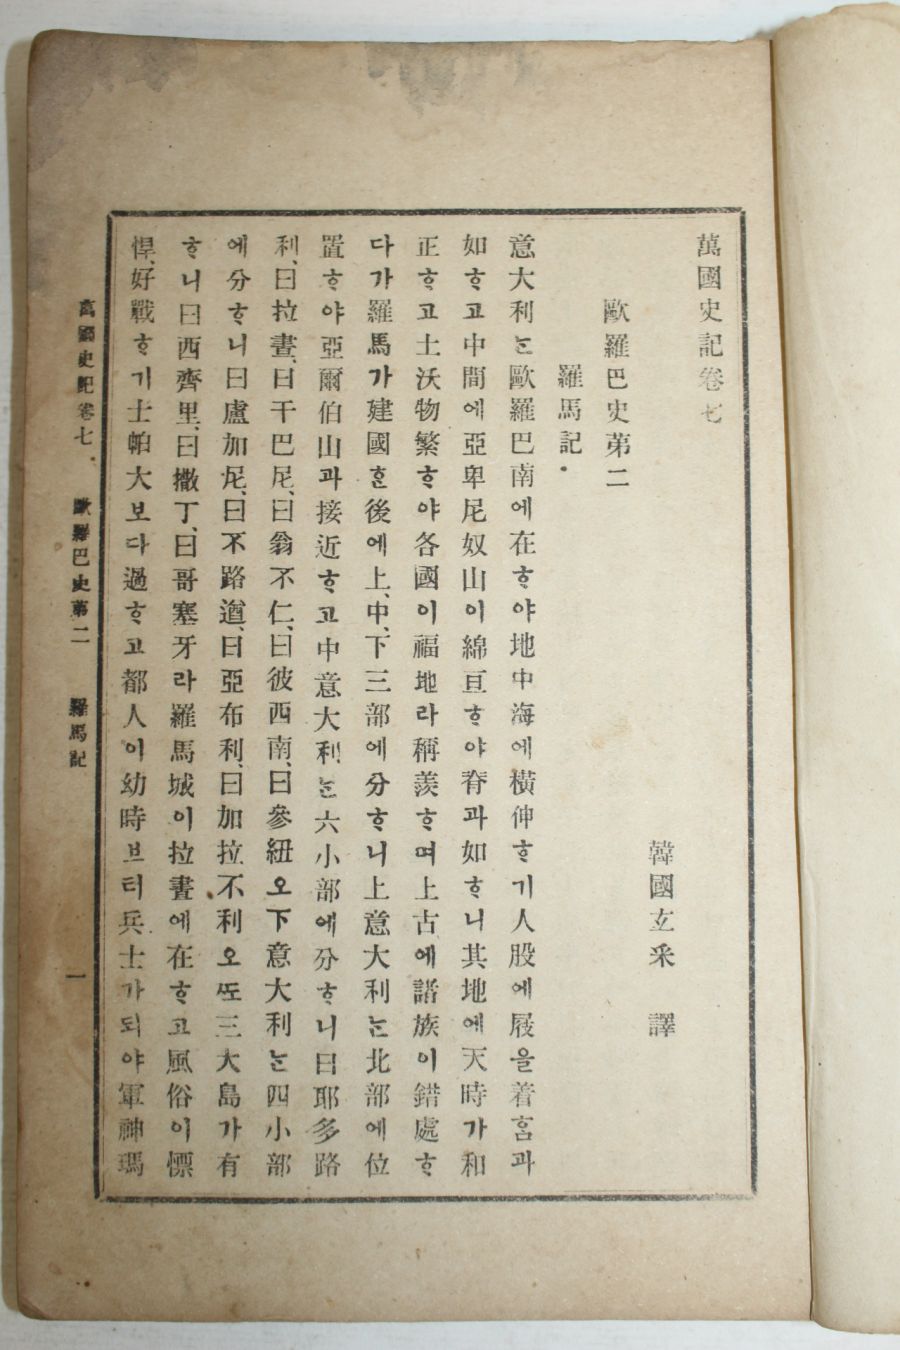 萬國史記卷七
韓國玄采 譯
歐羅巴史第二
羅馬記
意大利ᄂᆞᆫ歐羅巴南에在ᄒᆞ야地中海에橫伸ᄒᆞ기人股에屐을着ᄒᆞᆷ과
如ᄒᆞ고中間에亞卑尼奴山이綿亘ᄒᆞ야脊과如ᄒᆞ니其地에天時가和
正ᄒᆞ고土沃物繁ᄒᆞ야各國이福地라稱羨ᄒᆞ며上古에諸族이錯處ᄒᆞ
다가羅馬가建國ᄒᆞᆫ後에上、中、下三部에分ᄒᆞ니上意大利ᄂᆞᆫ北部에位
置ᄒᆞ야亞爾伯山과接近ᄒᆞ고中意大利ᄂᆞᆫ六小部에分ᄒᆞ니曰耶多路
利、曰拉晝、曰干巴尼、曰翁不仁、曰彼西南、曰參紐오下意大利ᄂᆞᆫ四小部
에分ᄒᆞ니曰盧加尼、曰不路道、曰亞布利、曰加拉不利오ᄯᅩ三大島가有
ᄒᆞ니曰西齊里、曰撒丁、曰哥塞牙라羅馬城이拉晝에在ᄒᆞ고風俗이慓
悍、好戰ᄒᆞ기士帕大보다過ᄒᆞ고都人이幼時브터兵士가되야軍神瑪
萬國史記卷七 歐羅巴史第二 羅馬記 一